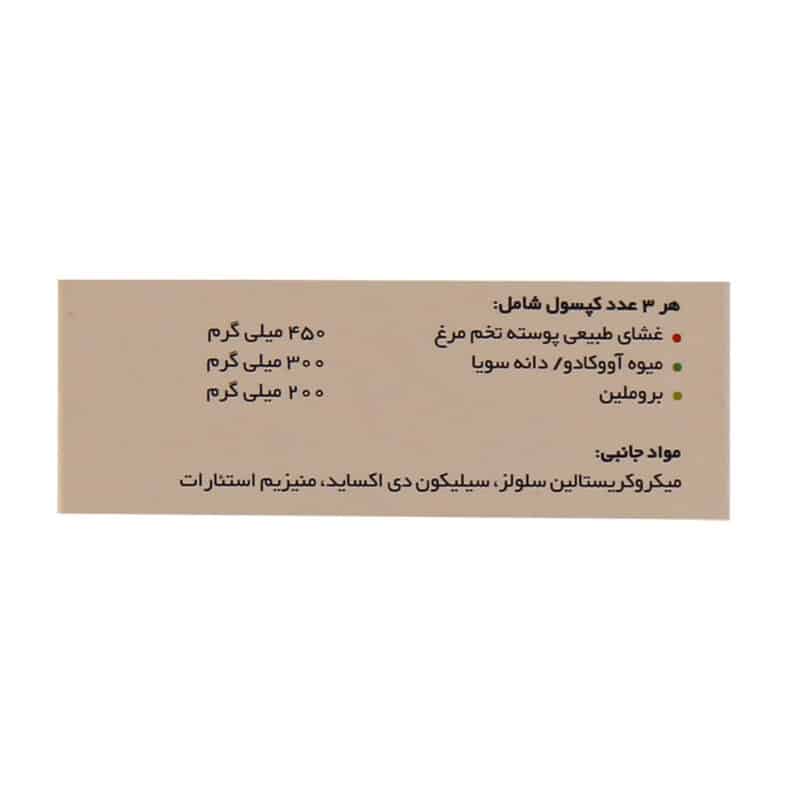 هر ۳ عدد کپسول شامل:
غشای طبیعی پوسته تخم مرغ ۴۵۰ میلی گرم
میوه آووکادو/ دانه سویا ۳۰۰ میلی گرم
بروملین ۲۰۰ میلی گرم
مواد جانبی:
میکروکریستالین سلولز، سیلیکون دی اکساید، منیزیم استئارات